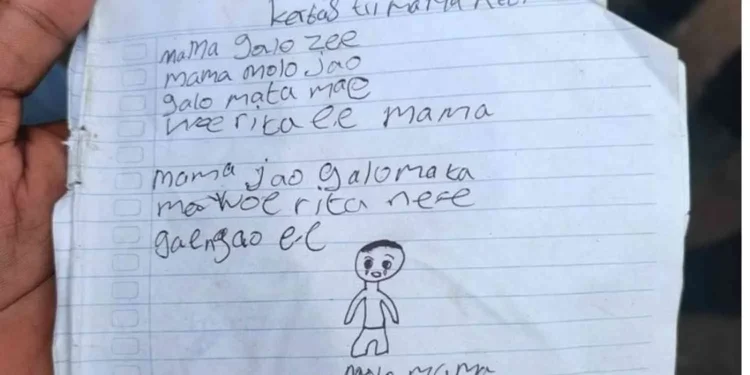 kertas tii mama
mama galo zee
mama molo jao
galo mata mae
woe rita ee mama
mama jao galo mata
mae woe rita nee
gaengao ee
molo mama